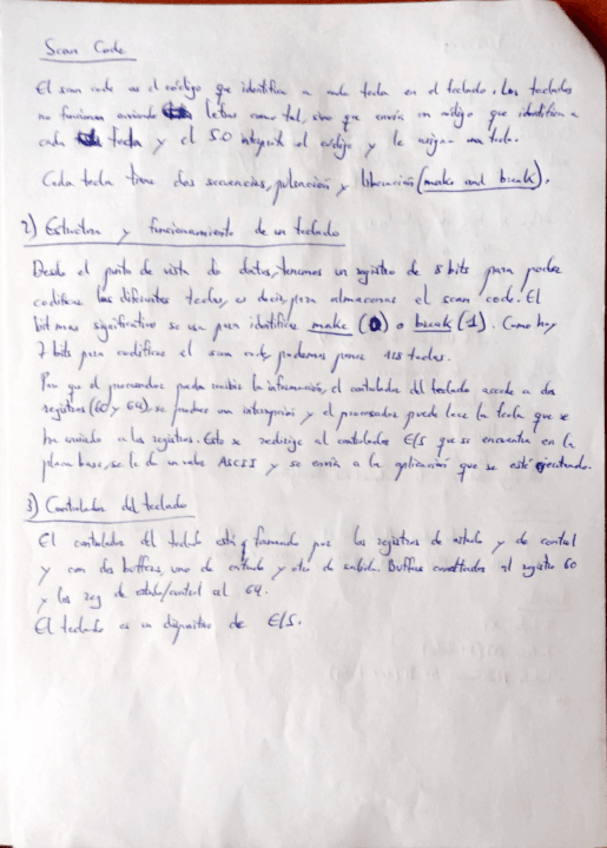 Scan Code
El scan code es el código que identifica a cada tecla en el teclado. Los teclados
no funcionan enviando letras como tal, sino que envía un código que identifica a
cada tecla y el S.O interpreta el código y le asigna una tecla.
Cada tecla tiene dos secuencias, pulsación y liberación (make and break).
2) Estructura y funcionamiento de un teclado
Desde el punto de vista de datos, tenemos un registro de 8 bits para poder
codificar las diferentes teclas, es decir, para almacenar el scan code. El
bit mas significativo se usa para identificar make (0) o break (1). Como hay
7 bits para codificar el scan code, podemos poner 128 teclas.
Para que el procesador pueda recibir la información, el controlador del teclado accede a dos
registros (60 y 64), se produce una interrupción y el procesador puede leer la tecla que se
ha enviado a los registros. Esto se redirige al controlador E/S que se encuentra en la
placa base, se le da un valor ASCII y se envía a la aplicación que se esté ejecutando.
3) Controlador del teclado
El controlador del teclado está formado por los registros de estado y de control
y con dos buffers, uno de entrada y otro de salida. Buffers conectados al registro 60
y los reg de estado/control al 64.
El teclado es un dispositivo de E/S.